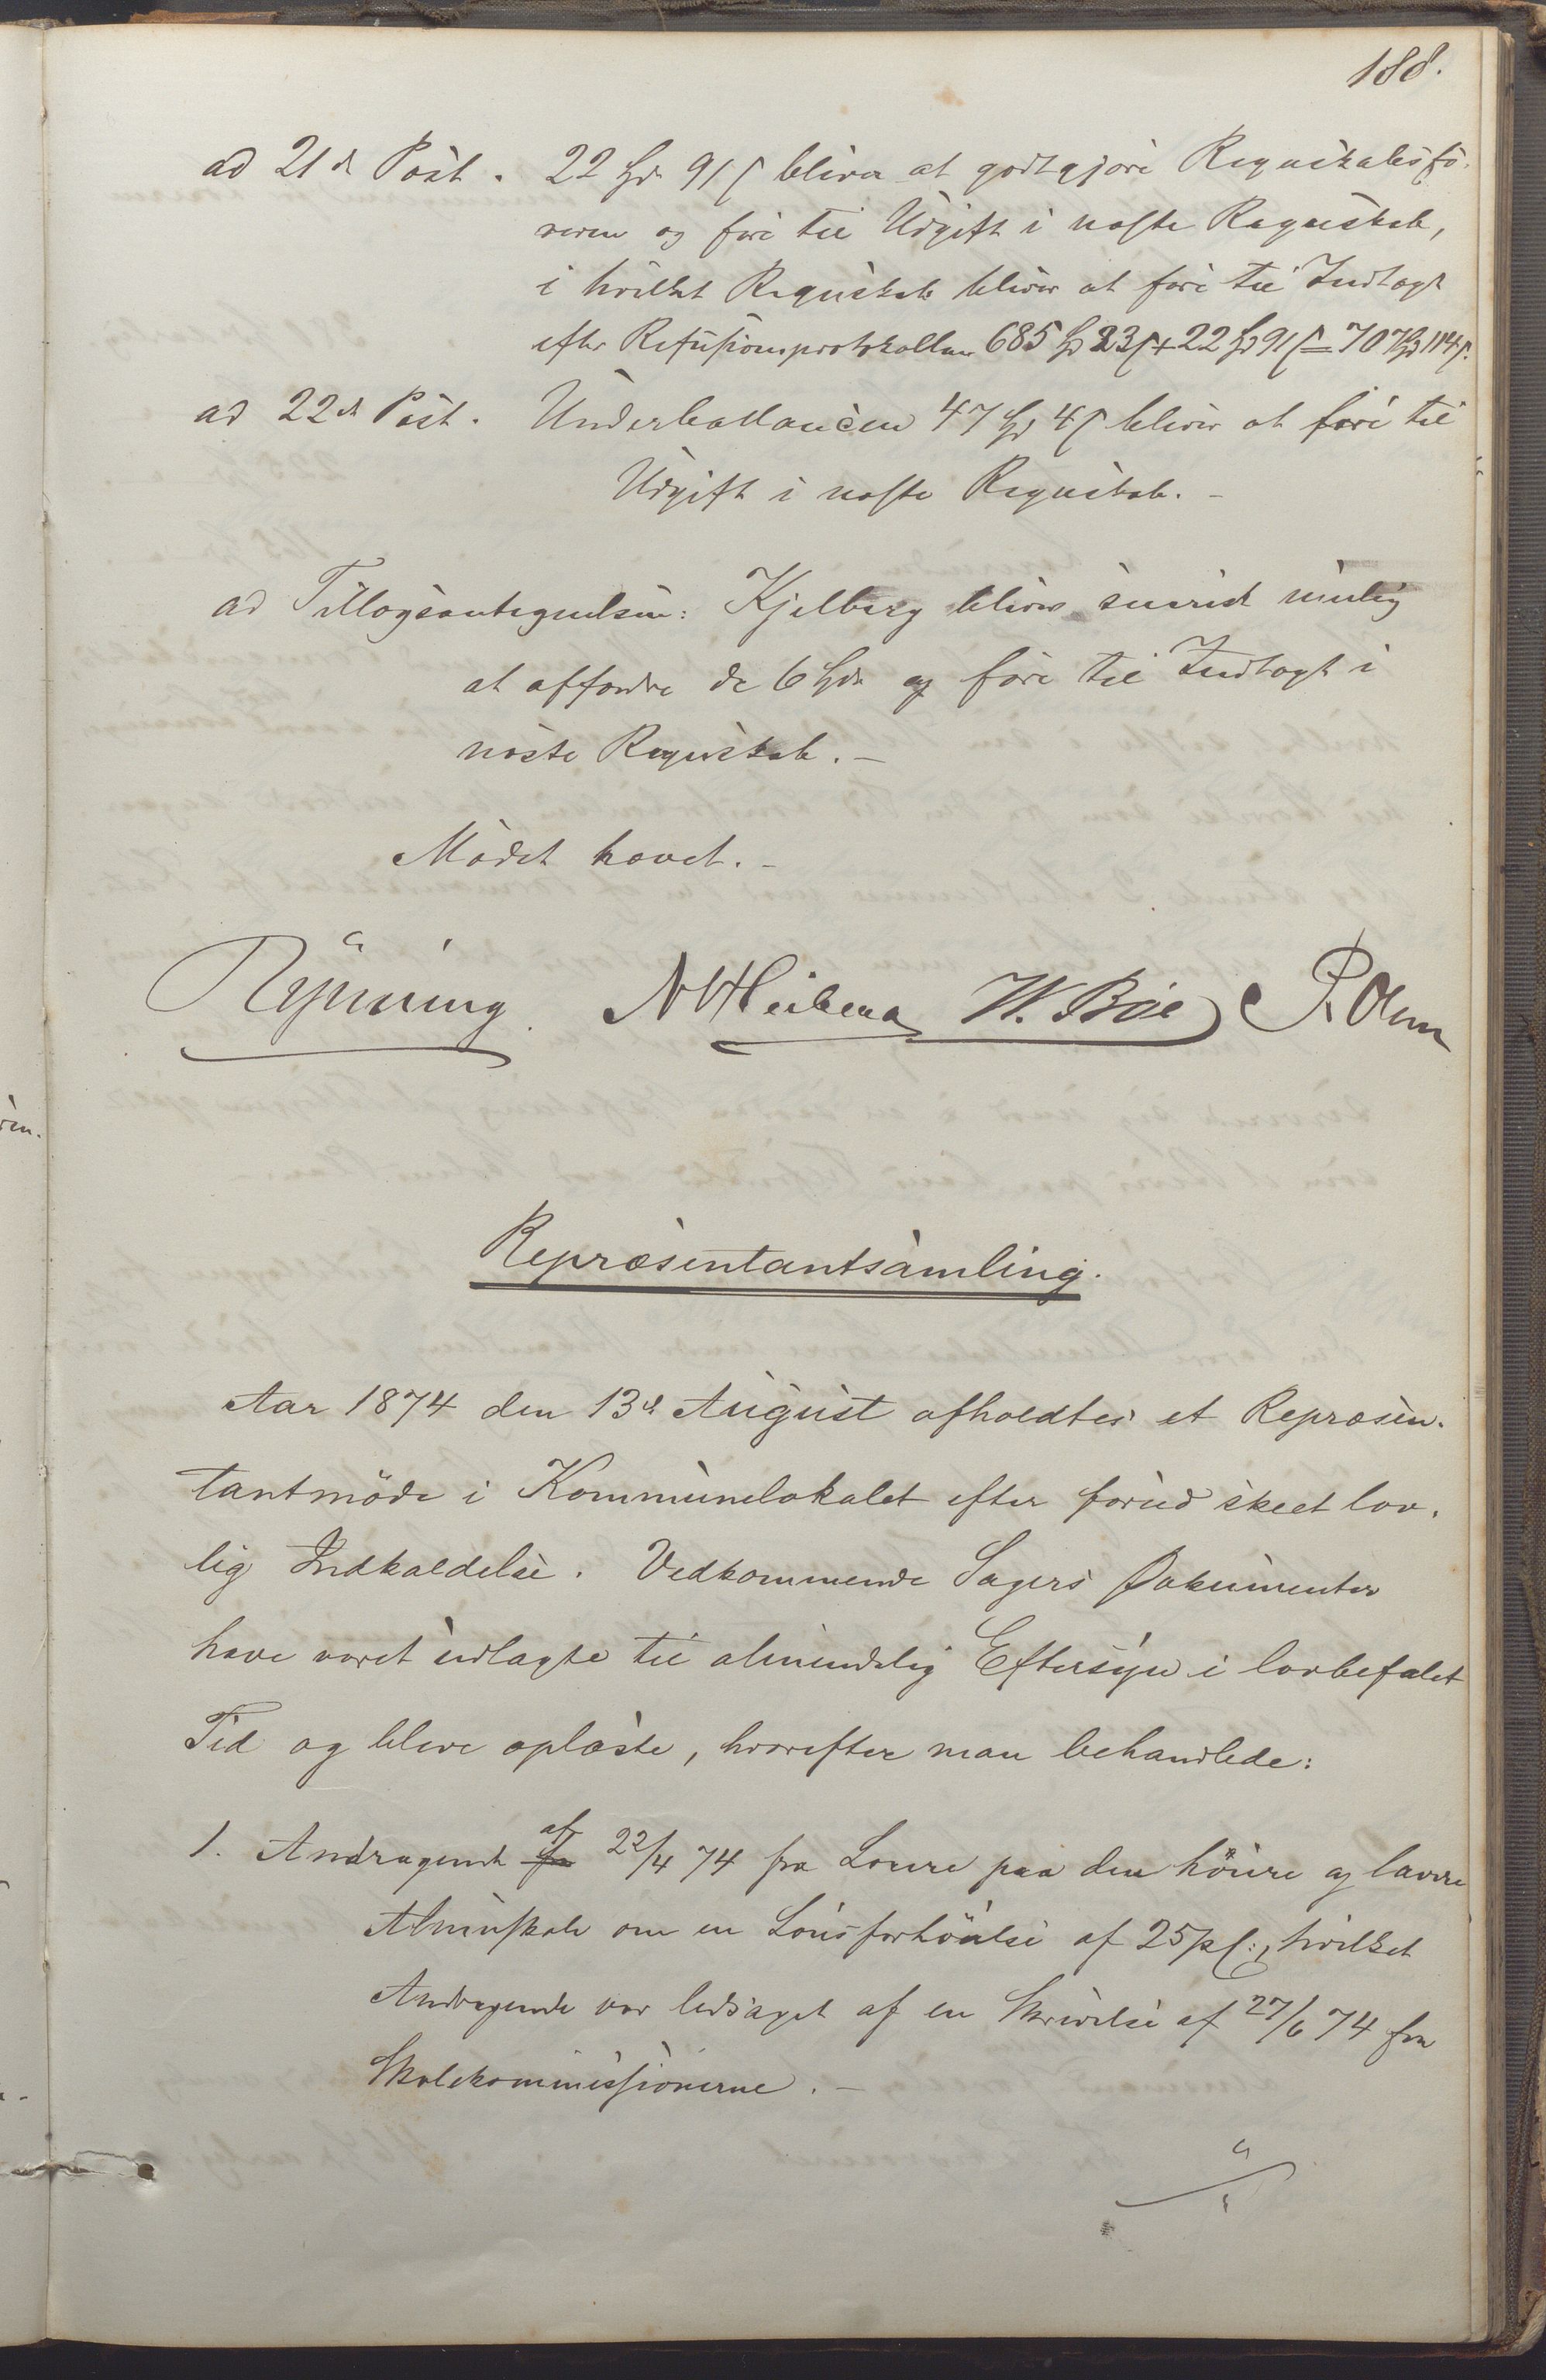 188.
ad 21de Post. 22 Spd 91 s bliver at godtgjøre Regnskabsfø-
reren og føre til Udgift i næste Regnskab,
i hvilket Regnskab bliver at føre til Indtægt
efter Refusionsprotokollen 685 Spd 23 s + 22 Spd 91 s = 707 Spd 114 s.
ad 22de Post. Underballancen 47 Spd 4 s bliver at føre til
Udgift i næste Regnskab. –
ad Tillægsantegnelsen: Kjelberg bliver snarest mulig
at affordre de 6 Spd og føre til Indtægt i
næste Regnskab. –
Mødet hævet. –
W. Bøe
Repræsentantsamling.
Aar 1874 den 13de August afholdtes et Repræsen-
tantmöde i Kommunelokalet efter forud skeet lov-
lig Indkaldelse. Vedkommende Sagers Dokumenter
have været udlagte til almindelig Eftersyn i lovbefalet
Tid og bleve oplæste, hvorefter man behandlede:
1. Andragende af 22/4 74 fra Lærere paa den höiere og lavere
Almuskole om en Lönsforhöielse af 25 ps:, hvilket
Andragende var ledsaget af en Skrivelse af 27/6 74 fra
Skolekommissionerne. –